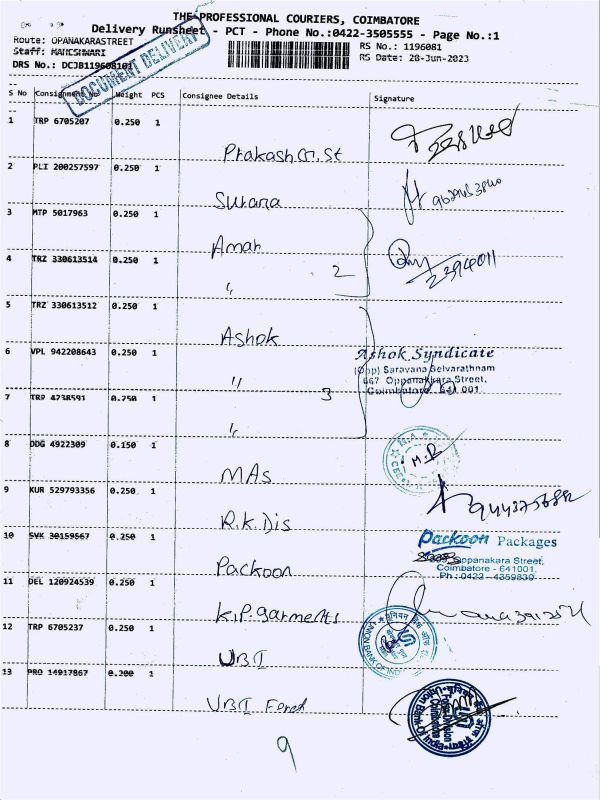 THE PROFESSIONAL COURIERS, COIMBATORE
Delivery Runsheet - PCT - Phone No.:0422-3505555 - Page No.:1
Route: OPANAKARASTREET
Staff: MAHESHWARI
DRS No.: DCJB119608101
RS No.: 1196081
RS Date: 28-Jun-2023
DOCUMENT DELIVERY
S No Consignment No Weight PCS Consignee Details Signature
1 TRP 6705207 0.250 1
Prakash.
2 PLI 200257597 0.250 1
Surana
3 MTP 5017963 0.250 1
Amar
4 TRZ 330613514 0.250 1
2
"
5 TRZ 330613512 0.250 1
Ashok
Ashok Syndicate
(Opp) Saravana Selvarathnam
667 Oppanakkara Street,
Coimbatore 641 001
6 VPL 942208643 0.250 1
"
7 TRP 4738591 0.250 1
3
"
8 DDG 4922309 0.150 1
MAs
M.R
9 KUR 529793356 0.250 1
R.K.Dis
10 SVK 30159567 0.250 1
Packoon
Packoon Packages
Oppanakara Street,
Coimbatore - 641001.
Ph : 0422 - 4359839
11 DEL 120924539 0.250 1
K.P.garments
12 TRP 6705237 0.250 1
UBI
UNION BANK OF INDIA
13 PRO 14917867 0.200 1
UBI
9